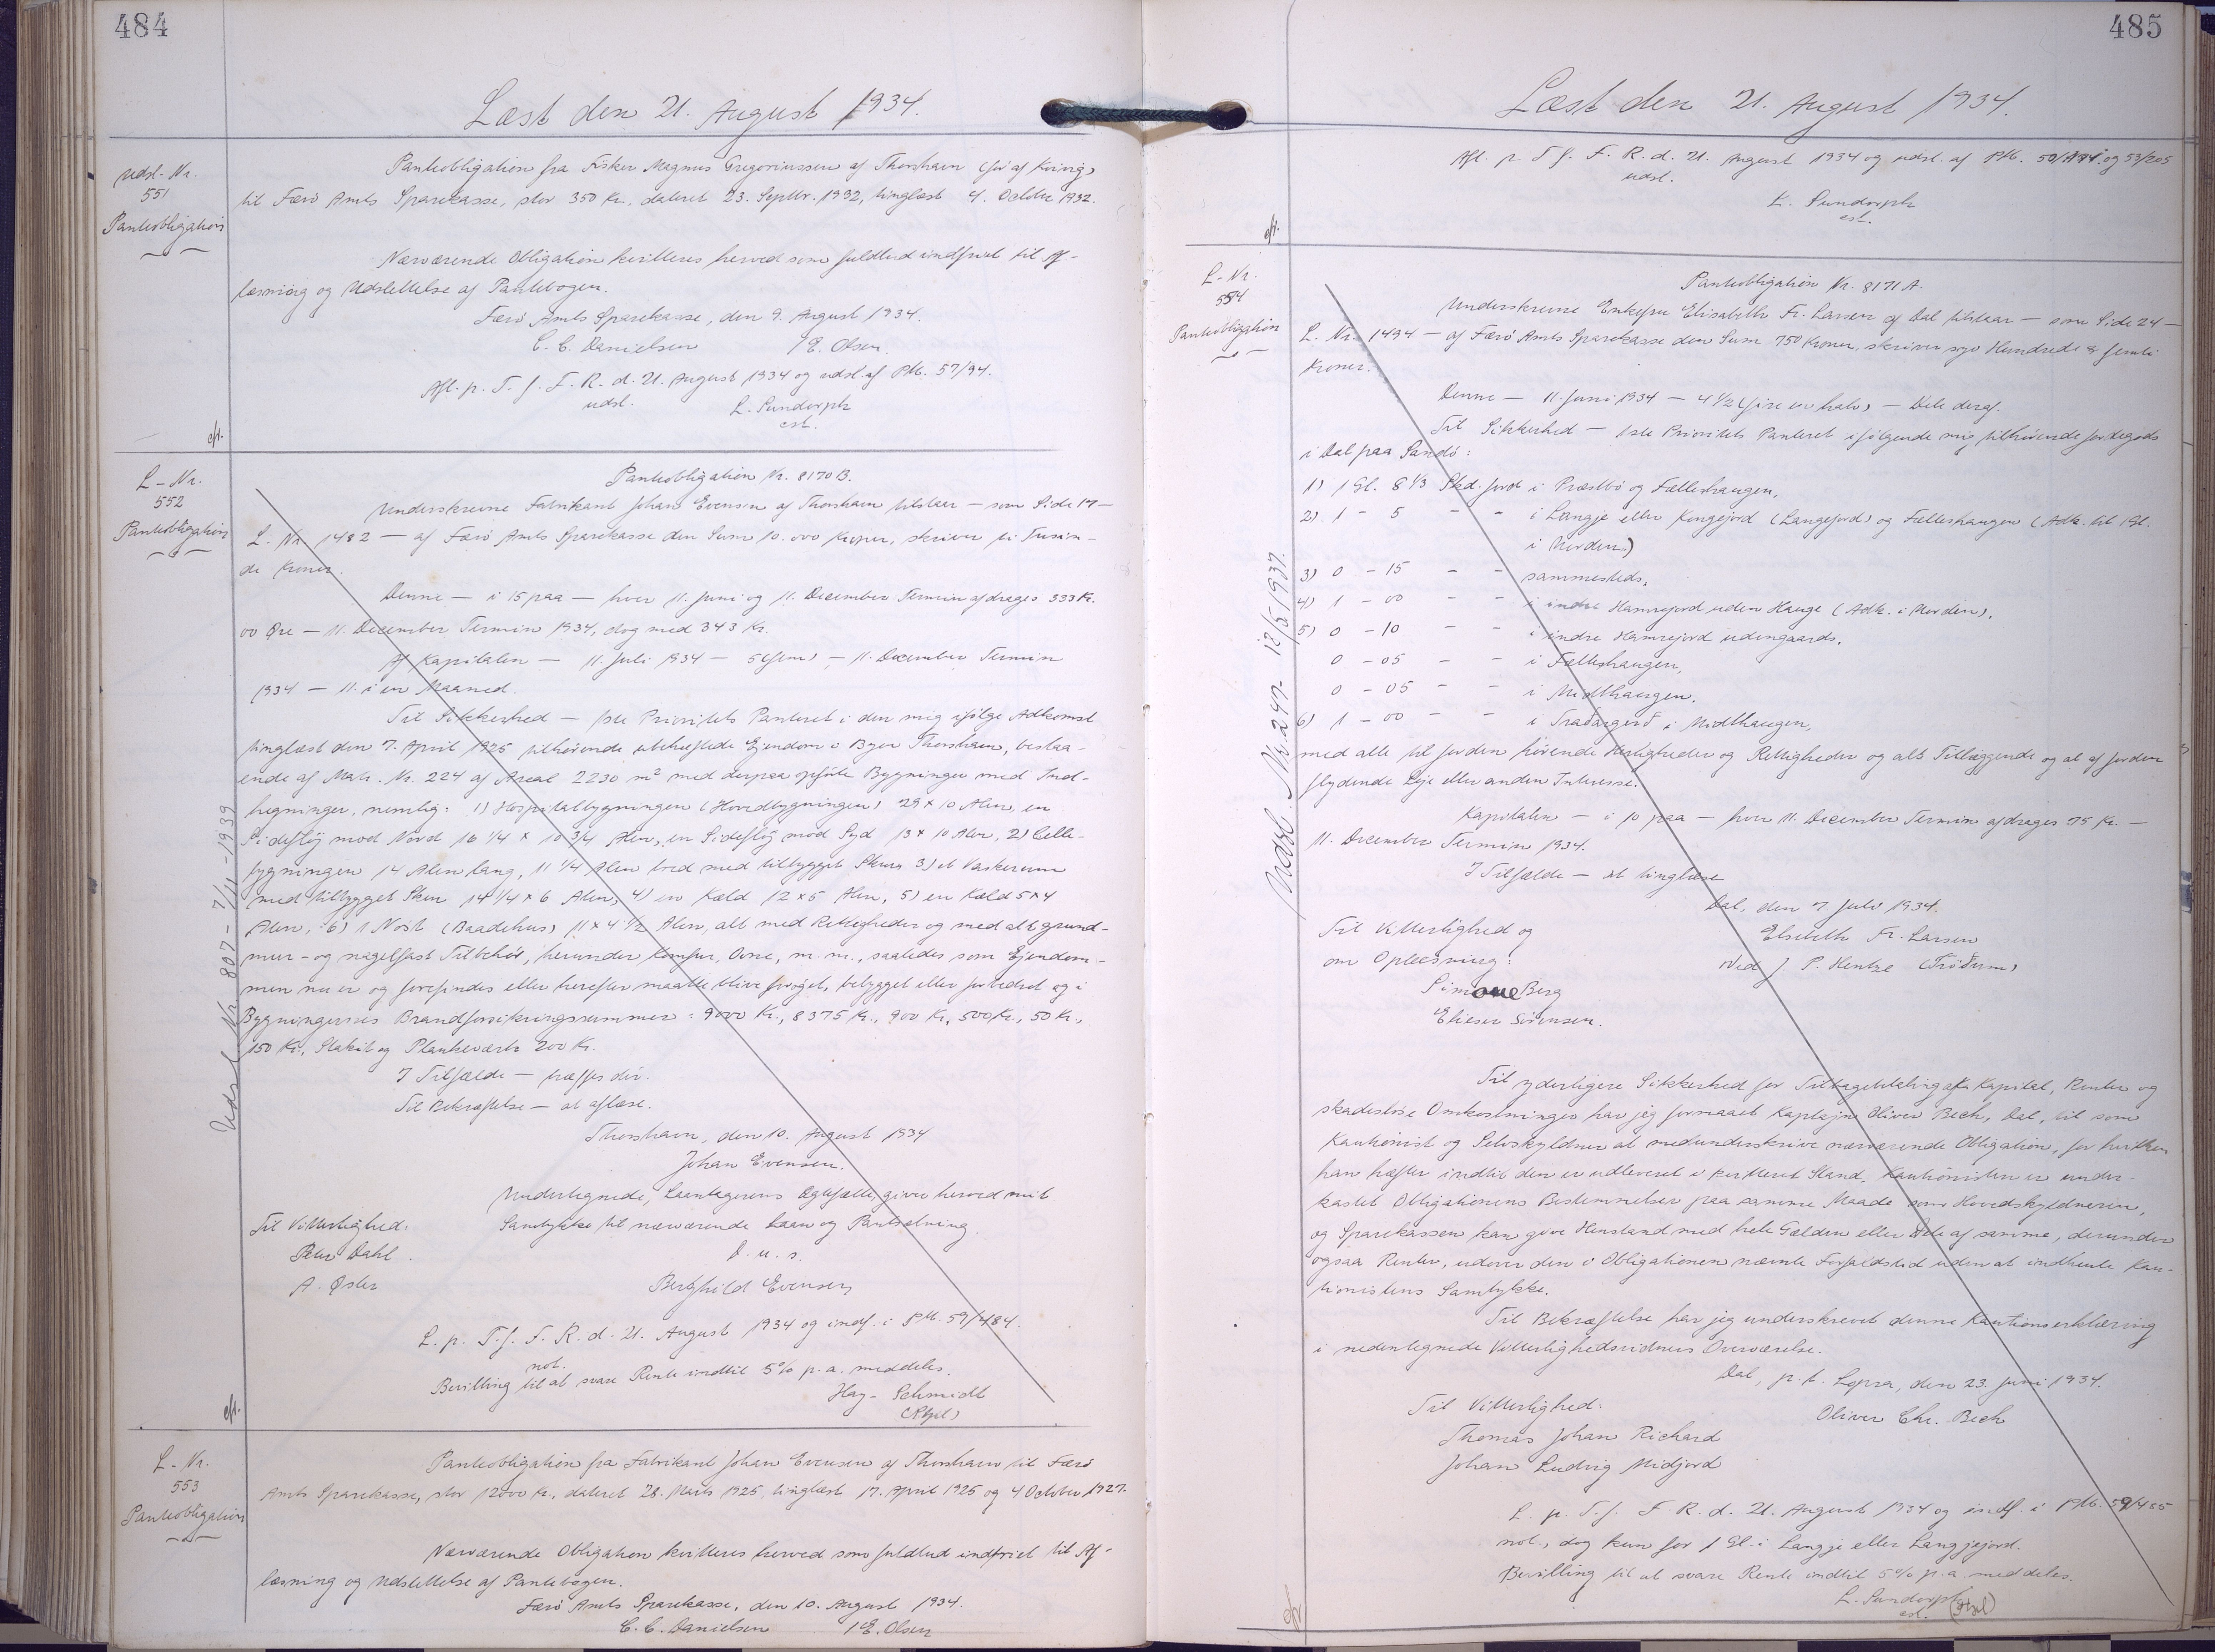 484
Læst den 21. August 1934.
Udsl. Nr.
551
Panteobligation
Panteobligation fra Fisker Magnus Gregoriussen af Thorshavn (før af Kvivig)
til Færø Amts Sparekasse, stor 350 Kr., dateret 23. Septbr. 1932, tinglæst 4. October 1932.
Nærværende Obligation kvitteres herved som fuldtud indfriet til Af-
læsning og Udslettelse af Pantebogen.
Færø Amts Sparekasse, den 9. August 1934.
C. C. Danielsen / E. Olsen.
Afl. p. T. f. F. R. d. 21. August 1934 og udsl. af Ptb. 57/94.
udsl. L. Sundorph
cst.
cft.
L-Nr.
552
Panteobligation
Panteobligation Nr. 8170 B.
Underskrevne Fabrikant Johan Evensen af Thorshavn tilstaar — som Side 17 —
L. Nr. 1482 — af Færø Amts Sparekasse den Sum 10.000 Kroner, skriver ti Tusin-
de Kroner.
Denne — i 15 paa — hver 11. Juni og 11. December Termin afdrages 333 Kr.
00 Øre — 11. December Termin 1934, dog med 343 Kr.
Af Kapitalen — 11. Juli 1934 — 5 (fem) — 11. December Termin
1934 — 11. i en Maaned.
Til Sikkerhed — 1ste Prioritets Panteret i den mig ifølge Adkomst
tinglæst den 7. April 1925 tilhørende ubehæftede Ejendom i Byen Thorshavn, bestaa-
ende af Matr. Nr. 224 af Areal 2230 m² med derpaa opførte Bygninger med Ind-
hegninger, nemlig: 1) Hospitalbygningen (Hovedbygningen) 29 x 10 Alen, en
Sidefløj mod Nord 16 1/4 x 10 3/4 Alen, en Sidefløj mod Syd 13 x 10 Alen, 2) Celle-
bygningen 14 Alen lang, 11 1/4 Alen bred med tilbygget Skur, 3) et Vaskerum
med tilbygget Skur 14 1/4 x 6 Alen, 4) en Kæld 12 x 5 Alen, 5) en Kæld 5 x 4
Alen, 6) 1 Nøst (Baadehus) 11 x 4 1/2 Alen, alt med Rettigheder og med alt grund-
mur- og nagelfast Tilbehør, herunder Komfur, Ovne, m. m., saaledes som Ejendom-
men nu er og forefindes eller herefter maatte blive forøget, bebygget eller forbedret og i
Bygningernes Brandforsikringssummer: 9000 Kr., 8375 Kr., 900 Kr., 500 Kr., 50 Kr.,
150 Kr., Stakit og Plankeværk 200 Kr.
I Tilfælde — træffes dér.
Til Bekræftelse — at aflæse.
Thorshavn, den 10. August 1934
Johan Evensen.
Undertegnede, Laantagerens Ægtefælle, giver herved mit
Til Vitterlighed: Samtykke til nærværende Laan og Pantsætning.
Peter Dahl. D. u. s.
A. Øster Berghild Evensen
L. p. T. f. F. R. d. 21. August 1934 og indf. i Ptb. 59/484.
not.
Bevilling til at svare Rente indtil 5% p. a. meddeles.
Hay-Schmidt
Udsl. Nr. 807 - 7/11 - 1939
cft.
L-Nr.
553
Panteobligation
Panteobligation fra Fabrikant Johan Evensen af Thorshavn til Færø
Amts Sparekasse, stor 12000 Kr., dateret 28. Marts 1925, tinglæst 17. April 1925 og 4 October 1927.
Nærværende Obligation kvitteres herved som fuldtud indfriet til Af-
læsning og Udslettelse af Pantebogen.
Færø Amts Sparekasse, den 10. August 1934.
C. C. Danielsen / E. Olsen
485
Læst den 21. August 1934.
Afl. p. T. f. F. R. d. 21. August 1934 og udsl. af Ptb. og 53/205
udsl.
L. Sundorph
cst.
cft.
L-Nr.
554
Panteobligation
Panteobligation Nr. 8171 A.
Underskrevne Enkefru Elisabeth Fr. Larsen af Dal tilstaar — som Side 24 —
L. Nr. 1494 — af Færø Amts Sparekasse den Sum 750 Kroner, skriver syv Hundrede & femti
Kroner.
Denne — 11. Juni 1934 — 4 1/2 (fire en halv) — Dele deraf.
Til Sikkerhed — 1ste Prioritets Panteret i følgende mig tilhørende Jordegods
i Dal paa Sandø:
1) 1 Gl. 8 1/3 Skd. Jord i Præstbø og Fælleshaugen,
2) 1 - 5 - - i Langje eller Kongejord (Langejord) og Fælleshaugen (Adk. til 1 Gl.
i Norden)
3) 0 - 15 - - sammesteds,
4) 1 - 00 - - i indre Hamrejord uden Hauge (Adk. i Norden),
5) 0 - 10 - - i indre Hamrejord udengaards,
0 - 05 - - i Fælleshaugen,
0 - 05 - - i Midthaugen,
6) 1 - 00 - - i Traðargerð i Midthaugen,
med alle til Jorden hørende Herligheder og Rettigheder og alt Tillæggende og al af Jorden
flydende Leje eller anden Interesse.
Kapitalen — i 10 paa — hver 11. December Termin afdrages 75 Kr. —
11. December Termin 1934.
I Tilfælde — at tinglæse
Dal, den 7 Juli 1934.
Til Vitterlighed og Elsebeth Fr. Larsen
om Oplæsning: Ved J. P. Hentze (Trøðum)
Simone Berg
Elieser Sørensen.
Til yderligere Sikkerhed for Tilbagebetaling af Kapital, Renter og
skadesløse Omkostninger har jeg formaaet Kaptajn Oliver Bech, Dal, til som
Kautionist og Selvskyldner at medunderskrive nærværende Obligation, for hvilken
han hæfter indtil den er udleveret i kvitteret Stand. Kautionisten er under-
kastet Obligationens Bestemmelser paa samme Maade som Hovedskyldneren,
og Sparekassen kan give Henstand med hele Gælden eller Dele af samme, derunder
ogsaa Renter, udover den i Obligationen nævnte Forfaldstid uden at indhente Kau-
tionistens Samtykke.
Til Bekræftelse har jeg underskrevet denne Kautionserklæring
i nedentegnede Vitterlighedsvidners Overværelse.
Dal, p. t. Lopra, den 23. Juni 1934.
Til Vitterlighed: Oliver Chr. Bech
Thomas Johan Richard
Johan Ludvig Midjord
L. p. T. f. F. R. d. 21. August 1934 og indf. i Ptb. 59/485
not., dog kun for 1 Gl. i Langje eller Langjejord.
Bevilling til at svare Rente indtil 5% p. a. meddeles.
L. Sundorph
cst.
Udsl. Nr. 247 - 12/5 1937.